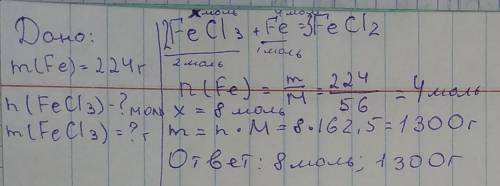 Дано:
m(Fe)=224г
n(FeCl3)-?мол
m(FeCl3)=?г
xмоль 4моль
2FeCl3+Fe=3FeCl2
2моль 1моль
n(Fe)=m/M=224/56=4моль
x=8моль
m=n·M=8·162,5=1300г
Ответ: 8моль; 1300г